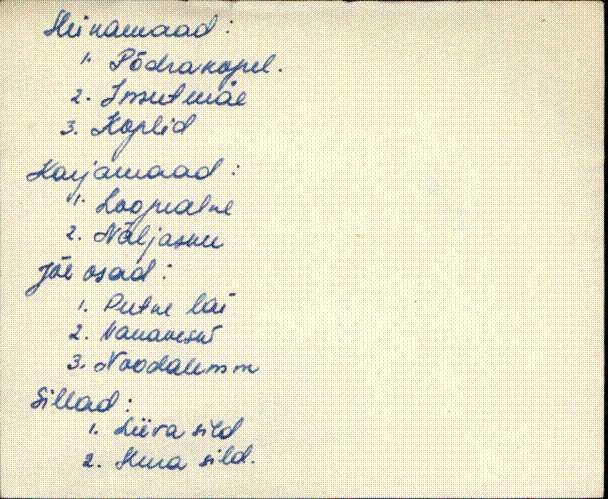 Heinamaad:
1. Põdrakopel.
2. Insutmäe
3. Koplid
Karjamaad:
1. Loopealne
2. Näljasuu
Jõe osad:
1. Putne lai
2. Vanaveski
3. Noodalemm
Sillad:
1. Liiva sild
2. sild.